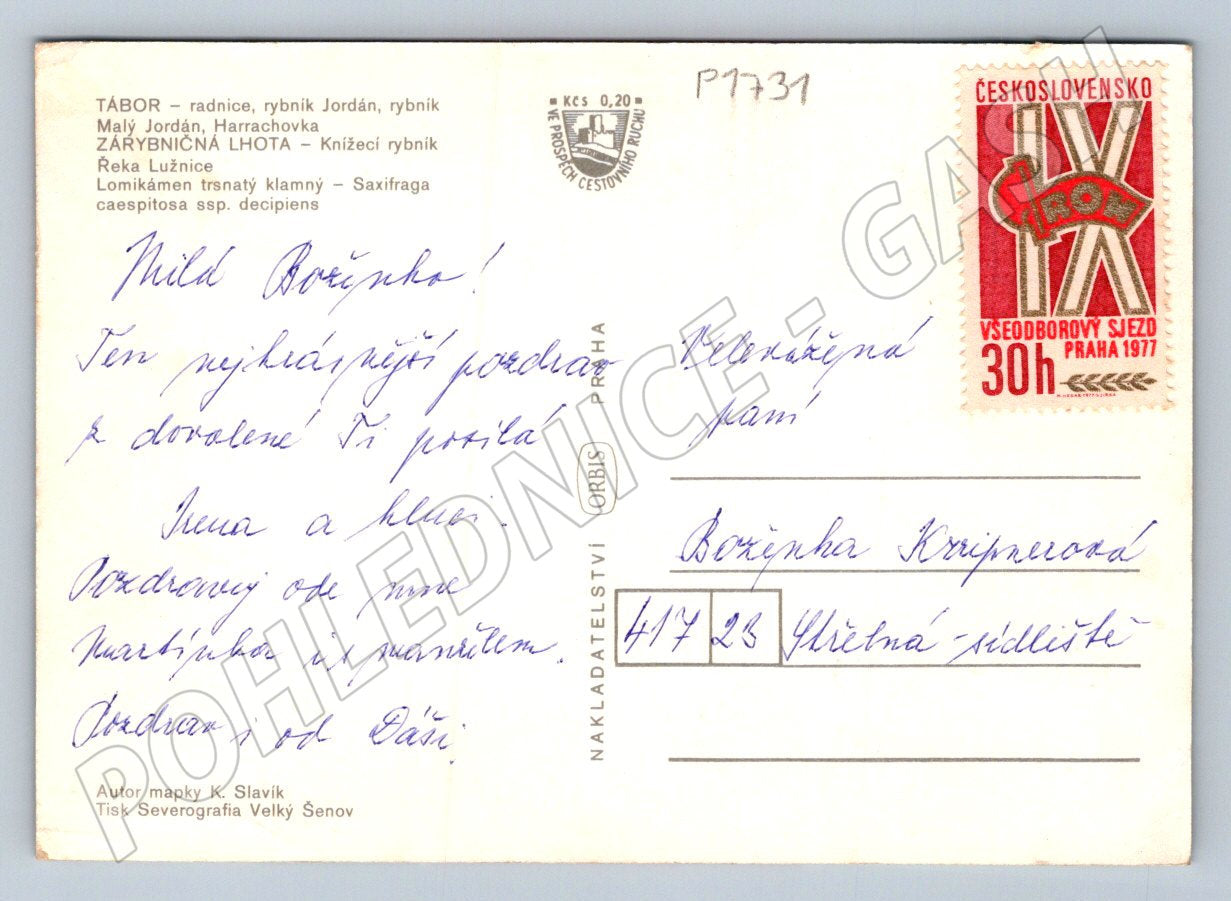 TÁBOR – radnice, rybník Jordán, rybník
Malý Jordán, Harrachovka
ZÁRYBNIČNÁ LHOTA – Knížecí rybník
Řeka Lužnice
Lomikámen trsnatý klamný – Saxifraga
caespitosa ssp. decipiens
Milá Boženko!
Ten nejkrásnější pozdrav
z dovolené Ti posílá
Irena a kluci.
Pozdravuj ode mne
Martínka i s manželem.
Pozdrav i od Dáši.
Autor mapky K. Slavík
Tisk Severografia Velký Šenov
Kčs 0,20
VE PROSPĚCH CESTOVNÍHO RUCHU
P1731
NAKLADATELSTVÍ ORBIS PRAHA
ČESKOSLOVENSKO
IX
ROH
VŠEODBOROVÝ SJEZD
PRAHA 1977
30h
Velevážená
paní
Boženka Kripnerová
417 23 Střelná-sídliště
POHLEDNICE - GASH